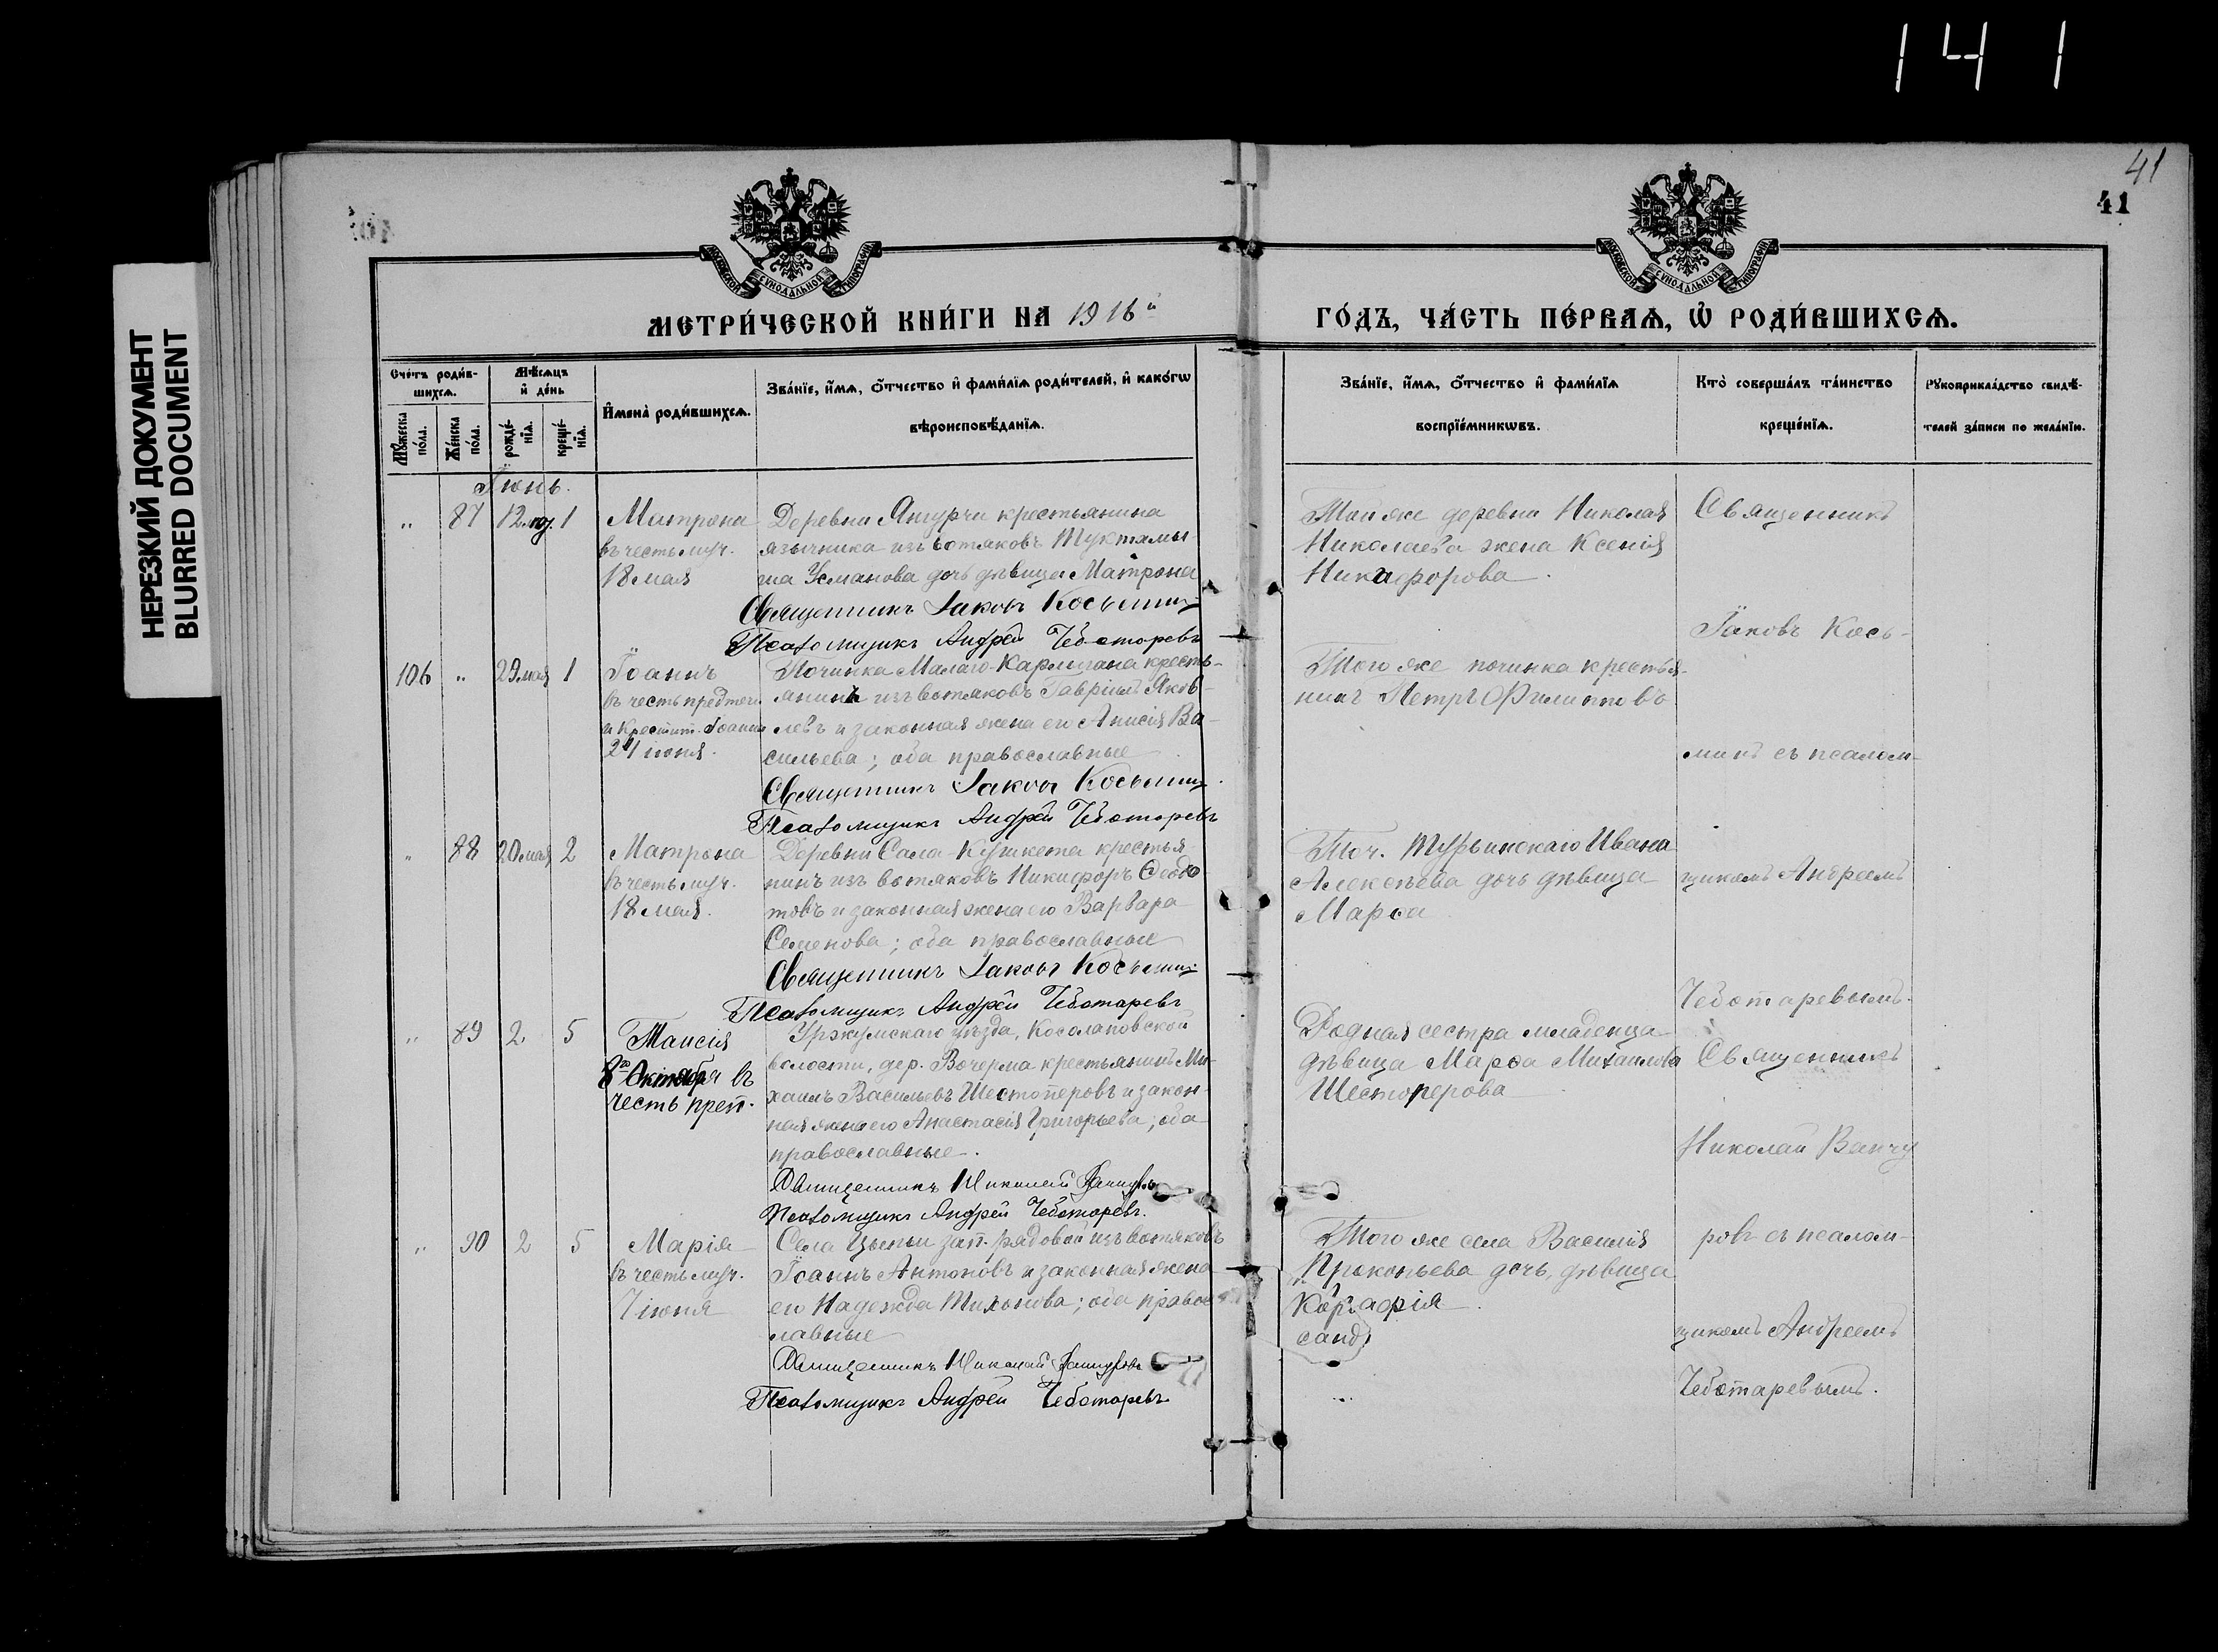 141
41
41
НЕРЕЗКИЙ ДОКУМЕНТ
BLURRED DOCUMENT
МОСКОВСКОЙ СѴНОДАЛЬНОЙ ТИПОГРАФІИ
МОСКОВСКОЙ СѴНОДАЛЬНОЙ ТИПОГРАФІИ
МЕТРИ́ЧЕСКОЙ КНИ́ГИ НА 1916й
ГО́ДЪ, ЧА́СТЬ ПЕ́РВАѦ, Ѡ҆ РОДИ́ВШИХСѦ.
Сче́тъ роди́в-
шихсѧ.
Мѣ́сѧцъ
и҆ де́нь
Мꙋ́жеска по́ла.
Же́нска по́ла.
рожде́-нїѧ.
креще́-нїѧ.
И҆мена̀ роди́вшихсѧ.
Зва́нїе, и҆́мѧ, ѻ҆́тчество и҆ фами́лїѧ роди́телей, и҆ како́гѡ
вѣроисповѣ́данїѧ.
Зва́нїе, и҆́мѧ, ѻ҆́тчество и҆ фами́лїѧ
воспрїе́мникѡвъ.
Кто̀ соверша́лъ та́инство
креще́нїѧ.
Рꙋкоприкла́дство свидѣ́-
телей за́писи по жела́нїю.
Іюнь.
" 87 12 1
Матрона
въ честь муч.
18 мая
Деревни Янгурчи крестьянина
язычника изъ вотяковъ Туктамы-
ша Усманова дочь дѣвица Матрона
Священникъ Іаковъ Косьминъ
Псаломщикъ Андрей Чеботаревъ
Той же деревни Николая
Николаева жена Ксенія
Никифорова.
Священникъ
Іаковъ Кось-
106 " 29 мая 1
Іоаннъ
въ честь предтечи
и Крестит. Іоанна
24 іюня.
Починка Малаго-Карлыгана кресть-
янинъ изъ вотяковъ Гавріилъ Яков-
левъ и законная жена его Анисія Ва-
сильева; оба православные
Священникъ Іаковъ Косьминъ
Псаломщикъ Андрей Чеботаревъ
Того же починка крестья-
нинъ Петръ Филипповъ
минъ съ псалом-
" 88 20 мая 2
Матрона
въ честь муч.
18 мая.
Деревни Сала-Кушкета крестья-
нинъ изъ вотяковъ Никифоръ Ѳедо
товъ и законная жена его Варвара
Семенова; оба православные
Священникъ Іаковъ Косьминъ
Псаломщикъ Андрей Чеботаревъ
Поч. Турьинскаго Ивана
Алексѣева дочь дѣвица
Марѳа
щикомъ Андреемъ
Чеботаревымъ.
" 89 2 5
Таисія
8го Октября въ
честь преп.
Уржумскаго уѣзда, Косолаповской
волости, дер. Вочерма крестьянинъ Ми-
хаилъ Васильевъ Шестоперовъ и закон-
ная жена его Анастасія Григорьева; оба
православные.
Священникъ Николай Ванчуровъ
Псаломщикъ Андрей Чеботаревъ.
Родная сестра младенца
дѣвица Марѳа Михаилова
Шестоперова
Священникъ
Николай Ванчу
" 90 2 5
Марія
въ честь муч.
7 іюня
Села Цыпьи зап. рядовой изъ вотяковъ
Іоаннъ Антоновъ и законная жена
его Надежда Тихонова; оба правос-
лавные
Священникъ Николай Ванчуровъ
Псаломщикъ Андрей Чеботаревъ
Того же села Василія
Прокопьева дочь, дѣвица
ровъ съ псалом-
щикомъ Андреемъ
Чеботаревымъ.